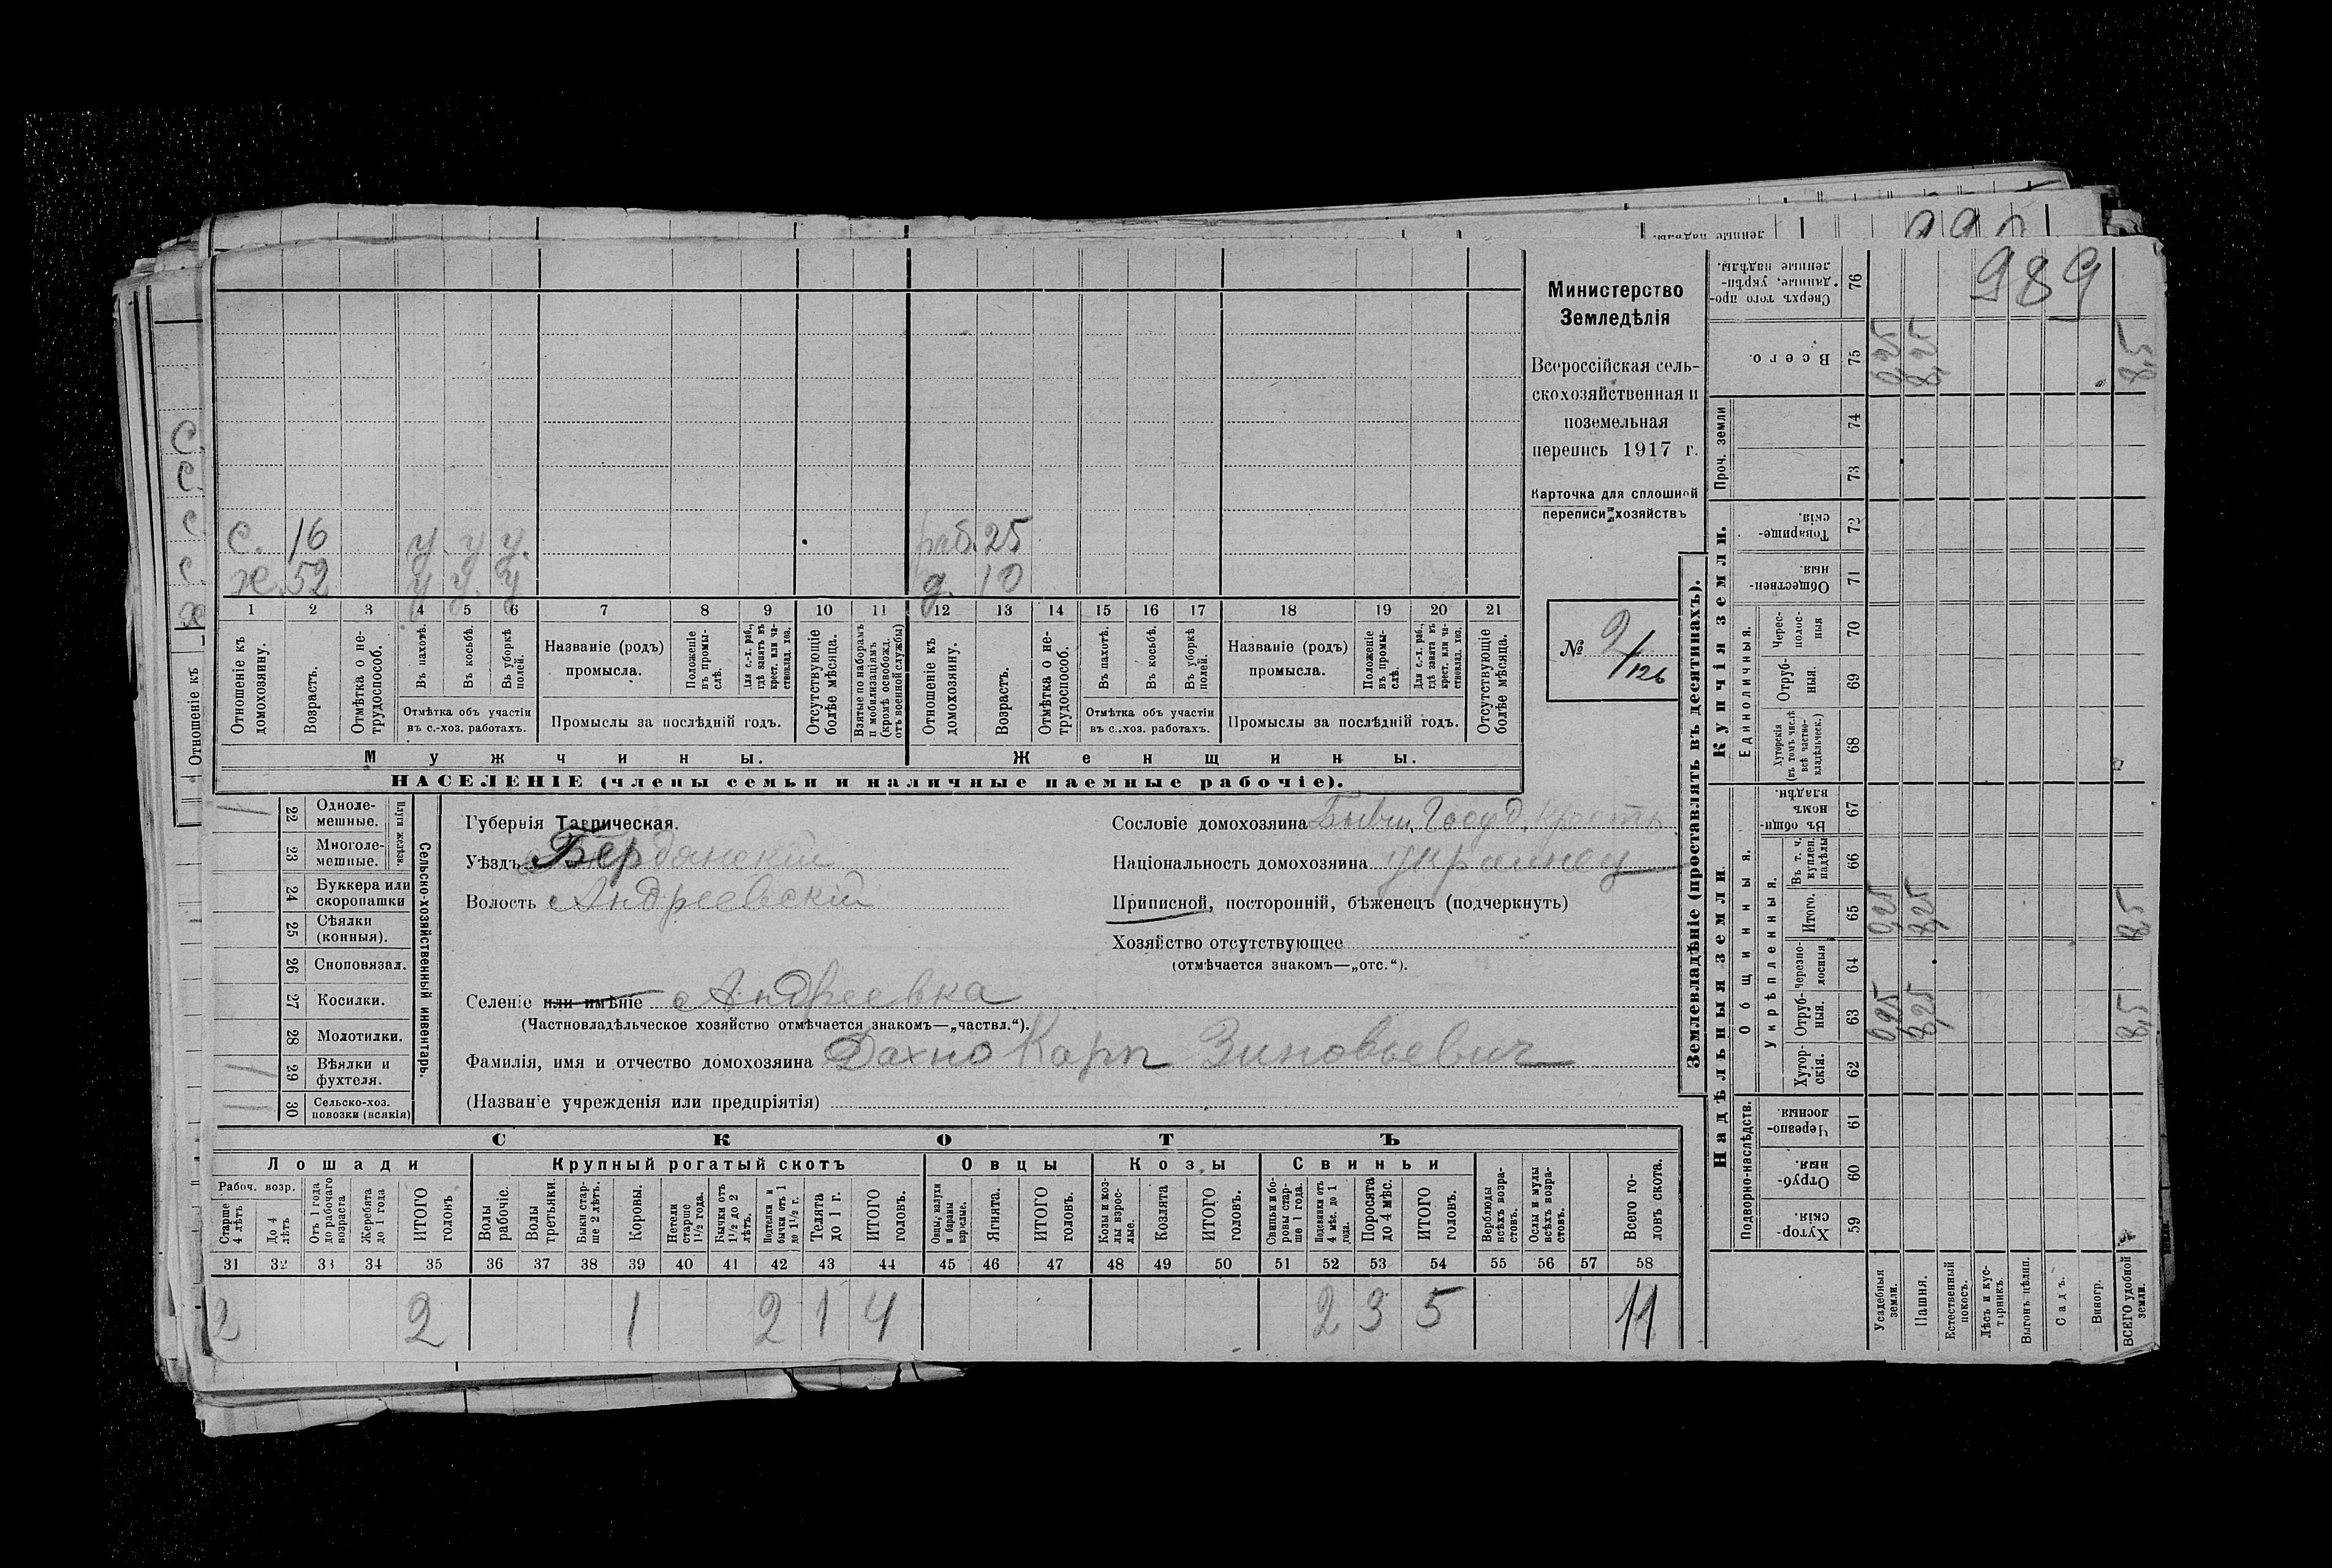 989
Министерство
Земледѣлія
Всероссійская сель-
скохозяйственная и
поземельная
перепись 1917 г.
Карточка для сплошной
переписи хозяйствъ
№ 2/126
с. 16 у. у у. раб. 25
х. 52 у у. у д. 10
1 2 3 4 5 6 7 8 9 10 11 12 13 14 15 16 17 18 19 20 21
Отношеніе къ домохозяину.
Возрастъ.
Отмѣтка о не-трудоспособ.
Въ пахотѣ.
Въ косьбѣ.
Въ уборкѣ полей.
Отмѣтка объ участіи
въ с.-хоз. работахъ.
Названіе (родъ)
промысла.
Положеніе въ промы-слѣ.
Для с.-х. раб., гдѣ занятъ въ крест. или ча-стновлад. хоз.
Промыслы за послѣдній годъ.
Отсутствующіе болѣе мѣсяца.
Взятые по наборамъ и мобилизаціямъ (кромѣ освобожд. отъ военной службы)
Отношеніе къ домохозяину.
Возрастъ.
Отмѣтка о не-трудоспособ.
Въ пахотѣ.
Въ косьбѣ.
Въ уборкѣ полей.
Отмѣтка объ участіи
въ с.-хоз. работахъ.
Названіе (родъ)
промысла.
Положеніе въ промы-слѣ.
Для с.-х. раб., гдѣ занята въ крест. или ча-стновлад. хоз.
Промыслы за послѣдній годъ.
Отсутствующіе болѣе мѣсяца.
Мужчины. Женщины.
НАСЕЛЕНІЕ (члены семьи и наличные наемные рабочіе).
Сельско-хозяйственный инвентарь.
Плуги желѣзн.
22 Одноле-мешные. 1
23 Многоле-мешные.
24 Буккера или скоропашки
25 Сѣялки (конныя).
26 Сноповязал.
27 Косилки.
28 Молотилки.
29 Вѣялки и фухтеля. 1
30 Сельско-хоз. повозки (всякія)
Губернія Таврическая.
Уѣздъ Бердянскій
Волость Андреевскій
Сословіе домохозяина Бывш. Госуд. крестъ
Національность домохозяина украинец
Приписной, посторонній, бѣженецъ (подчеркнуть)
Хозяйство отсутствующее
(отмѣчается знакомъ—„отс.“).
Селеніе или имѣніе Андреевка
(Частновладѣльческое хозяйство отмѣчается знакомъ—„частвл.“).
Фамилія, имя и отчество домохозяина Дахно Карп Зиновьевич
(Названіе учрежденія или предпріятія)
СКОТЪ
Лошади Крупный рогатый скотъ Овцы Козы Свиньи
Рабоч. возр.
Старше 4 лѣтъ
До 4 лѣтъ
Отъ 1 года до рабочаго возраста
Жеребята до 1 года
ИТОГО головъ
Волы рабочіе.
Волы третьяки.
Быки стар-ше 2 лѣтъ.
Коровы.
Нетели старше 1½ года.
Бычки отъ 1½ до 2 лѣтъ.
Подтелки и бычки отъ 1 до 1½ г.
Телята до 1 г.
ИТОГО головъ.
Овцы, валухи и бараны взрослые.
Ягнята.
ИТОГО головъ.
Козы и коз-лы взрос-лые.
Козлята
ИТОГО головъ.
Свиньи и бо-ровы стар-ше 1 года.
Подсвинки отъ 4 мѣс. до 1 года.
Поросята до 4 мѣс.
ИТОГО головъ.
Верблюды всѣхъ возра-стовъ.
Ослы и мулы всѣхъ возра-стовъ.
Всего го-ловъ скота.
31 32 33 34 35 36 37 38 39 40 41 42 43 44 45 46 47 48 49 50 51 52 53 54 55 56 57 58
2 2 1 2 1 4 2 3 5 11
Землевладѣніе (проставлять въ десятинахъ).
Купчія земли.
Надѣльныя земли.
Сверхъ того про-данные, укрѣп-ленные надѣлы. 76
Всего. 75 0,25 8,25 8,5
Проч. земли 74 73
Товарище-скія. 72
Обществен-ныя. 71
Единоличныя.
Черес-полос-ныя 70
Отруб-ныя. 69
Хуторскія (въ томъ числѣ всѣ частно-владѣльческ.) 68
Общинныя.
Въ общи-номъ владѣн. 67
Укрѣпленныя.
Въ т. ч. куплен. надѣлы 66
Итого. 65 0,25 8,25 8,5
Черезпо-лосныя 64
Отруб-ныя. 63 0,25 8,25 8,5
Хутор-скія. 62
Подворно-наслѣдств.
Черезпо-лосныя. 61
Отруб-ныя. 60
Хутор-скія. 59
Усадебныя земли.
Пашня.
Естественный покосъ.
Лѣсъ и кус-тарникъ.
Выгонъ цѣлин.
Садъ.
Виногр.
ВСЕГО удобной земли.